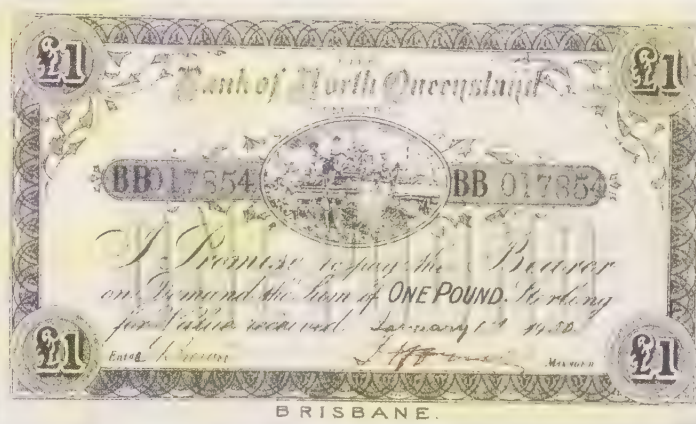 £1 £1
Bank of North Queensland
BB 017854 BB 017854
I Promise to pay the Bearer
on Demand the Sum of ONE POUND Sterling
for Value received. January 1st
£1 Entd. MANAGER £1
BRISBANE.